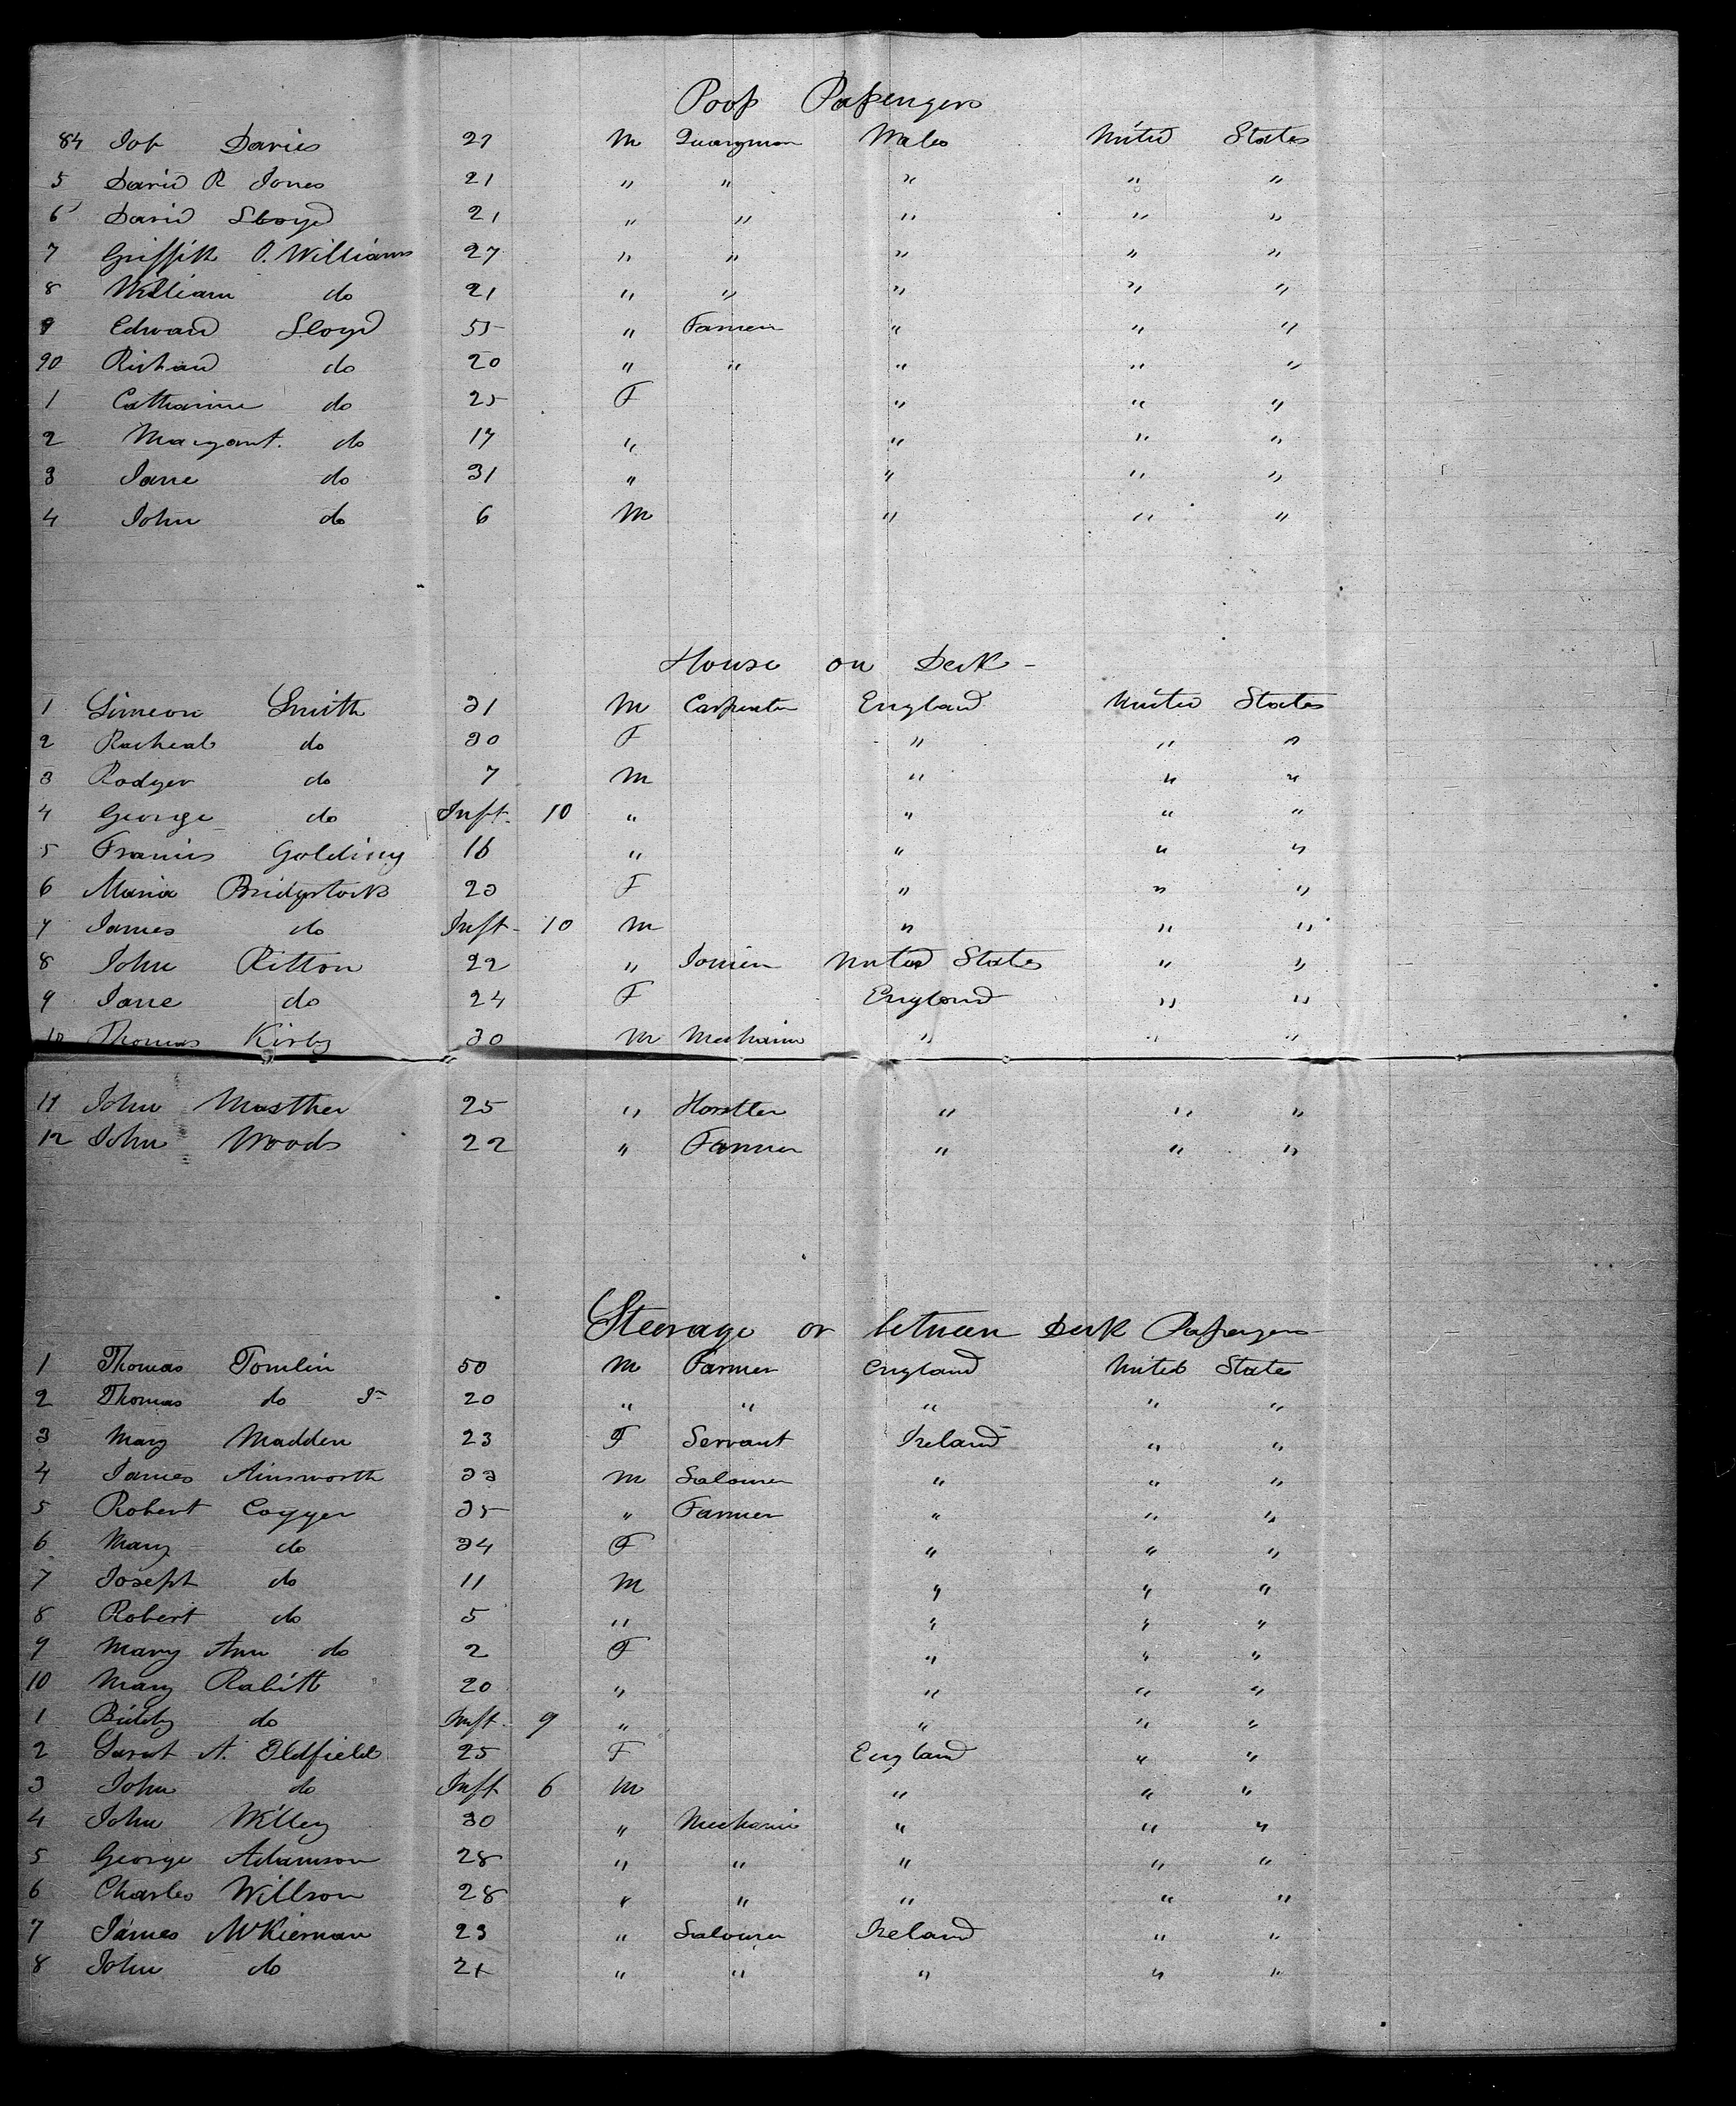 Poop Passengers
84 Job Davies 27 M Quarryman Wales United States
5 David R Jones 21 " " " " "
6 David Lloyd 21 " " " " "
7 Griffith O. Williams 27 " " " " "
8 William do 21 " " " " "
9 Edward Lloyd 55 " Farmer " " "
90 Richard do 20 " " " " "
1 Catharine do 25 F " " "
2 Margaret. do 17 " " " "
3 Jane do 31 " " " "
4 John do 6 M " " "
House on Deck -
1 Simeon Smith 31 M Carpenter England United States
2 Racheal do 30 F " " "
3 Rodger do 7 M " " "
4 George do Inft. 10 " " " "
5 Francis Golding 16 " " " "
6 Maria Bridgstock 23 F " " "
7 James do Inft - 10 M " " "
8 John Ritton 22 " Joiner United States " "
9 Jane do 24 F England " "
10 Thomas Kirby 30 M Mechanic " " "
11 John Masther 25 " Hostler " " "
12 John Woods 22 " Farmer " " "
Steerage or between Deck Passengers
1 Thomas Tomlin 50 M Farmer England United States
2 Thomas do Jr 20 " " " " "
3 Mary Madden 23 F Servant Ireland " "
4 James Ainsworth 33 M Labourer " " "
5 Robert Cogger 35 " Farmer " " "
6 Mary do 34 F " " "
7 Joseph do 11 M " " "
8 Robert do 5 " " " "
9 Mary Ann do 2 F " " "
10 Mary Rabitt 20 " " " "
1 Biddy do Inft. 9 " " " "
2 Sarat A. Oldfield 25 F England " "
3 John do Inft 6 M " " "
4 John Willey 30 " Mechanic " " "
5 George Adamson 28 " " " " "
6 Charles Willson 28 " " " " "
7 James McKiernan 23 " Labourer Ireland " "
8 John do 21 " " " " "